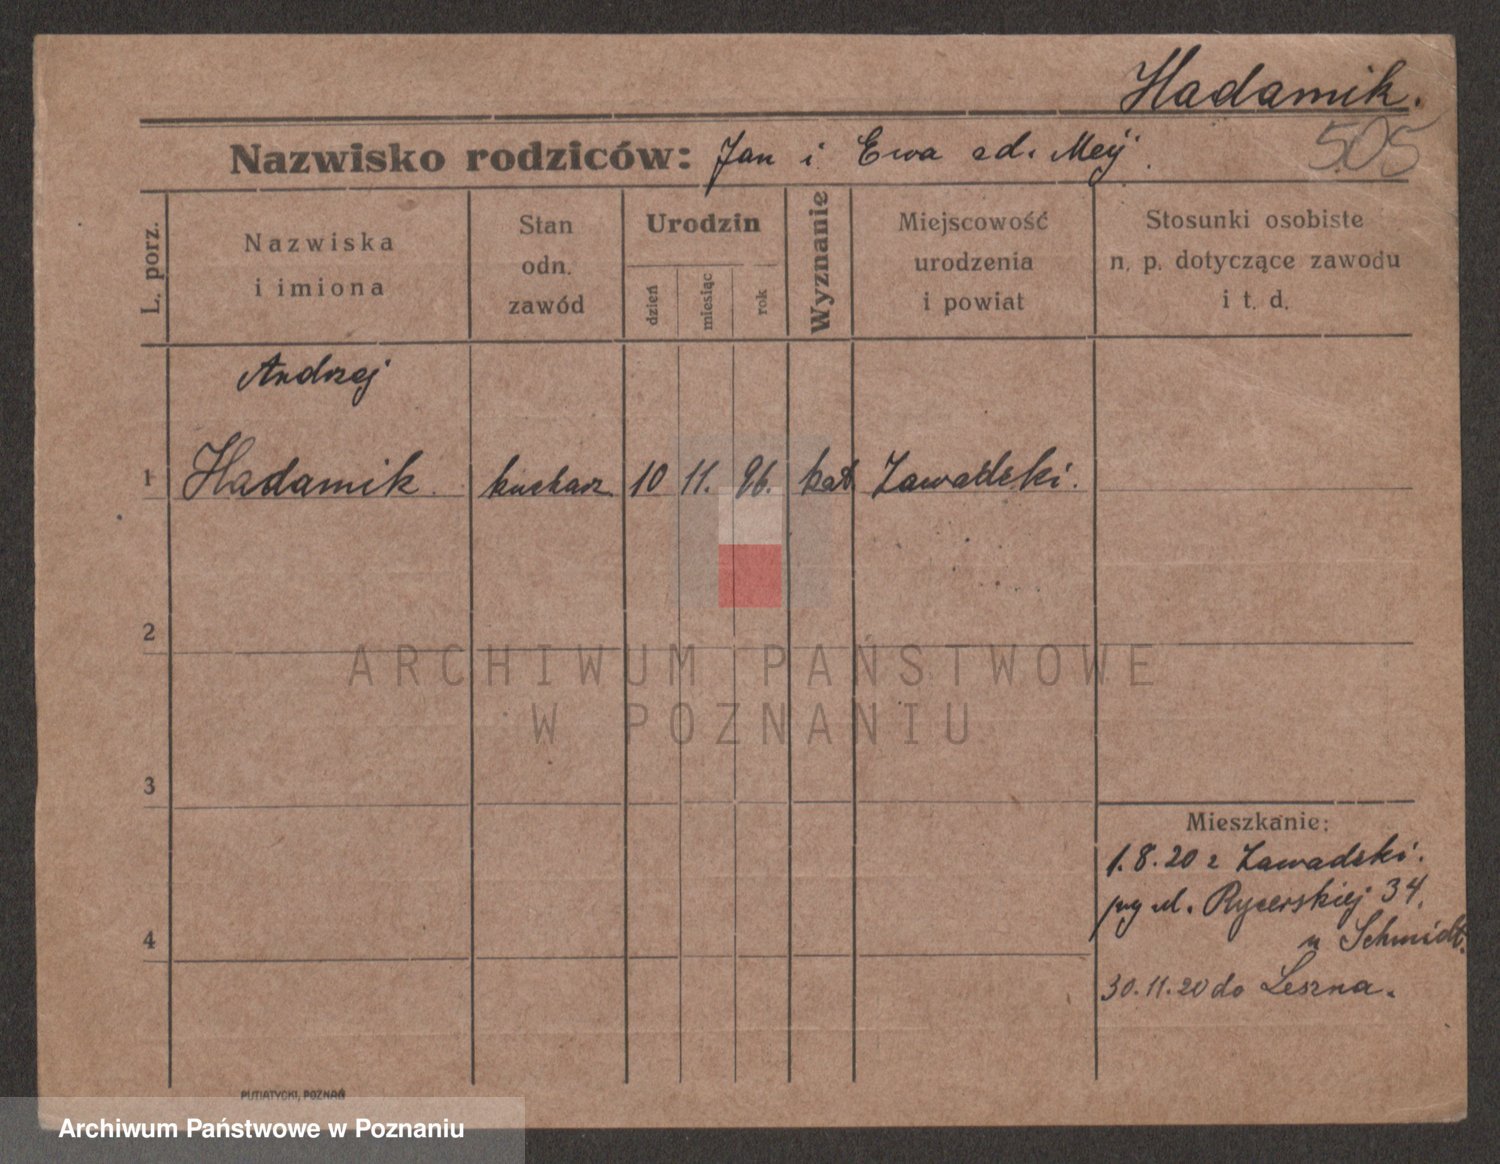 Hadamik.
505
Nazwisko rodziców: Jan i Ewa zd. Meÿ.
L. porz.
Nazwiska
i imiona
Stan
odn.
zawód
Urodzin
dzień
miesiąc
rok
Wyznanie
Miejscowość
urodzenia
i powiat
Stosunki osobiste
n. p. dotyczące zawodu
i t. d.
Andrzej
1 Hadamik. kucharz. 10 11. 96. kat Zawadzki.
2
3
4
Mieszkanie:
1.8.20 z Zawadzki.
ul. Rycerskiej 34,
u Schmidt.
30.11.20 do Leszna.
PUTIATYCKI, POZNAŃ
ARCHIWUM PAŃSTWOWE
W POZNANIU
Archiwum Państwowe w Poznaniu